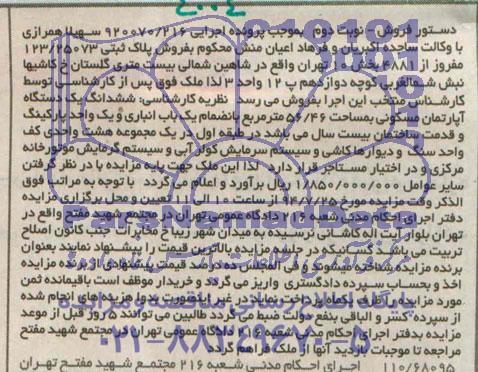 دستور فروش - نوبت دوم بموجب پرونده اجرایی ۹۲۰۰۷۰/۲۱۶ سهیلا همرازی
با وکالت ساجده اکبریان و فرهاد اعیان منش محکوم بفروش پلاک ثبتی ۱۲۳/۲۵۰۷۳
مفروز از ۴۸۸۱ بخش تهران واقع در شاهین شمالی بیست متری گلستان خ کاشیها
نبش شمالغربی کوچه دوازدهم پ ۱۲ واحد ۳ لذا ملک فوق پس از کارشناسی توسط
کارشناس منتخب این اجرا بفروش می رسد نظریه کارشناسی: ششدانگ یک دستگاه
آپارتمان مسکونی بمساحت ۵۶/۴۶ مترمربع بانضمام یک باب انباری و یک واحد پارکینگ
و قدمت ساختمان بیست سال می باشد در طبقه اول در یک مجموعه هشت واحدی کف
واحد سنگ و دیوارها کاشی و سیستم سرمایش کولر آبی و سیستم گرمایش موتورخانه
مرکزی و در اختیار مستاجر قرار دارد لذا این ملک جهت پایه مزایده با در نظر گرفتن
سایر عوامل ۱/۸۵۰/۰۰۰/۰۰۰ ریال برآورد و اعلام می گردد با توجه به مراتب فوق
الذکر وقت مزایده مورخ ۹۴/۷/۲۵ از ساعت ۱۰ الی ۱۱ تعیین و محل برگزاری مزایده
دفتر اجرای احکام مدنی شعبه ۲۱۶ دادگاه عمومی تهران در مجتمع شهید مفتح واقع در
تهران بلوار آیت اله کاشانی نرسیده به میدان شهر زیبا خ مخابرات جنب کانون اصلاح
تربیت می باشد کسانیکه در جلسه مزایده بالاترین قیمت را پیشنهاد نمایند بعنوان
برنده مزایده شناخته میشوند و فی المجلس ده درصد قیمت پیشنهادی از برنده مزایده
اخذ و بحساب سپرده دادگستری واریز می گردد و خریدار موظف است باقیمانده ثمن
مورد مزایده را ظرف یکماه پرداخت نماید در غیر اینصورت بدوا هزینه های انجام شده
از سپرده کسر و الباقی بنفع دولت ضبط می گردد طالبین می توانند ۵ روز قبل از موعد
مزایده بدفتر اجرای احکام مدنی شعبه ۲۱۶ دادگاه عمومی تهران در مجتمع شهید مفتح
مراجعه تا موجبات بازدید آنها از ملک فراهم گردد
۱۱۰/۶۸۰۹۵ اجرای احکام مدنی شعبه ۲۱۶ مجتمع شهید مفتح تهران
۰۲۱-۸۸۳۴۹۶۷۰-۵